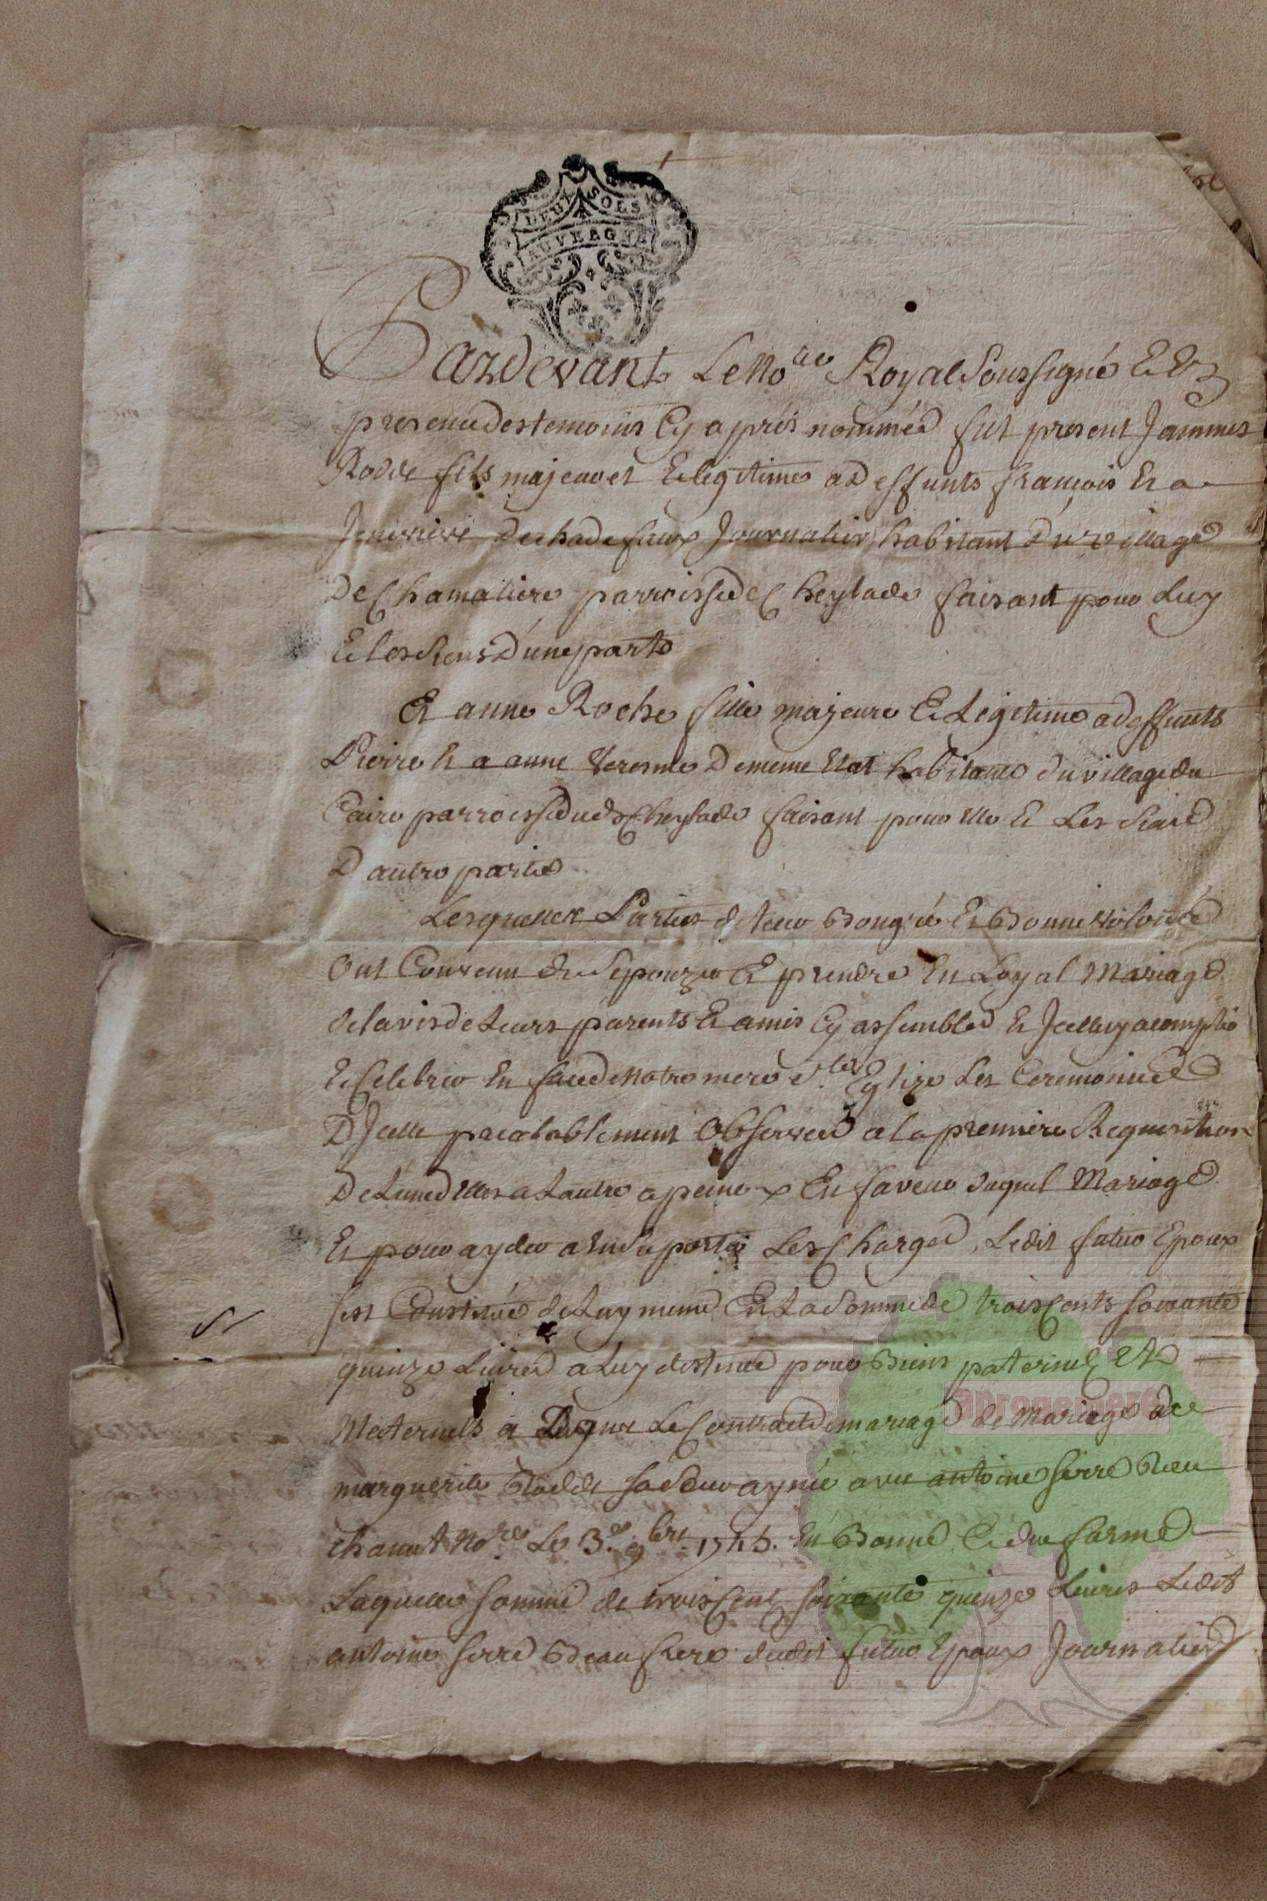 DEUX SOLS
AUVERGNE
Pardevant Le No.re Royal Soussigné Et En
presence des temoins Cy aprés nommés fut present Jammes
Rodde fils majeur et Et legitime a deffunts françois Et a
dechadefaux Journalier habitant du village
De Chamaliere parroisse de Cheylade faisant pour Luy
Et les siens D'une parte
Et anne Roche fille majeure Et Legitime a deffunts
Pierre Et a anne de meme Etat habitante du village du
Caire parroisse dud. Cheylade faisant pour Elle Et Les Siens
D'autre partie
Lesquelles Parties de Leur Bon gré Et Bonne Volonté
Ont Convenu de Sepouzer Et prendre En Loyal Mariage
de lavis de Leurs parents Et amis Cy assemblés Et Jcelluy acomplir
Et Celebrer En face de Notre mere S.te Eglize Les Ceremonies
D'Jcelle prealablement Observées a la premiere Requisition
De Lune D'elles a Lautre a peine x En faveur duquel Mariage
Et pour ayder a En Suporter Les Charges, Ledit futur Epoux
sest Constitué de Luy meme En La Somme de trois Cents soixante
quinze Livres a Luy destinée pour Biens paternels Et
Maternels a Le Contract de mariage de Mariage de
marguerite Rodde sa Sœur aynée avec antoine serre Reçu
chanut No.re Le 3.e 9bre 1745. En Bonne Et due forme
Laquelle somme de trois Cent soixante quinze Livres Ledit
antoine serre Beau frere dudit futur Epoux Journalier